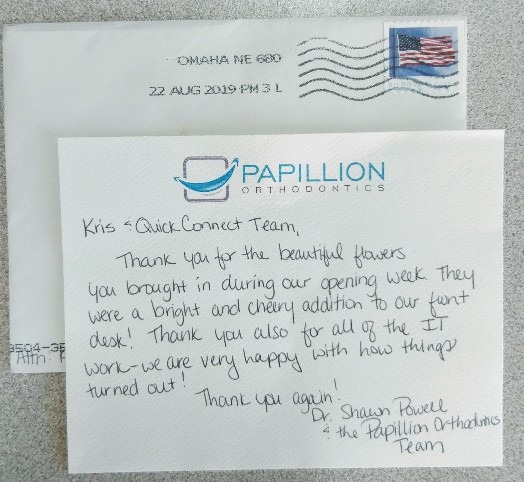 OMAHA NE 680
22 AUG 2019 PM 3 L
PAPILLION
ORTHODONTICS
Kris & Quick Connect Team,
Thank you for the beautiful flowers
you brought in during our opening week. They
were a bright and cheery addition to our front
desk! Thank you also for all of the IT
work-we are very happy with how things
turned out!
Thank you again!
Dr. Shawn Powell
& the Papillion Orthodontics
Team
Attn: